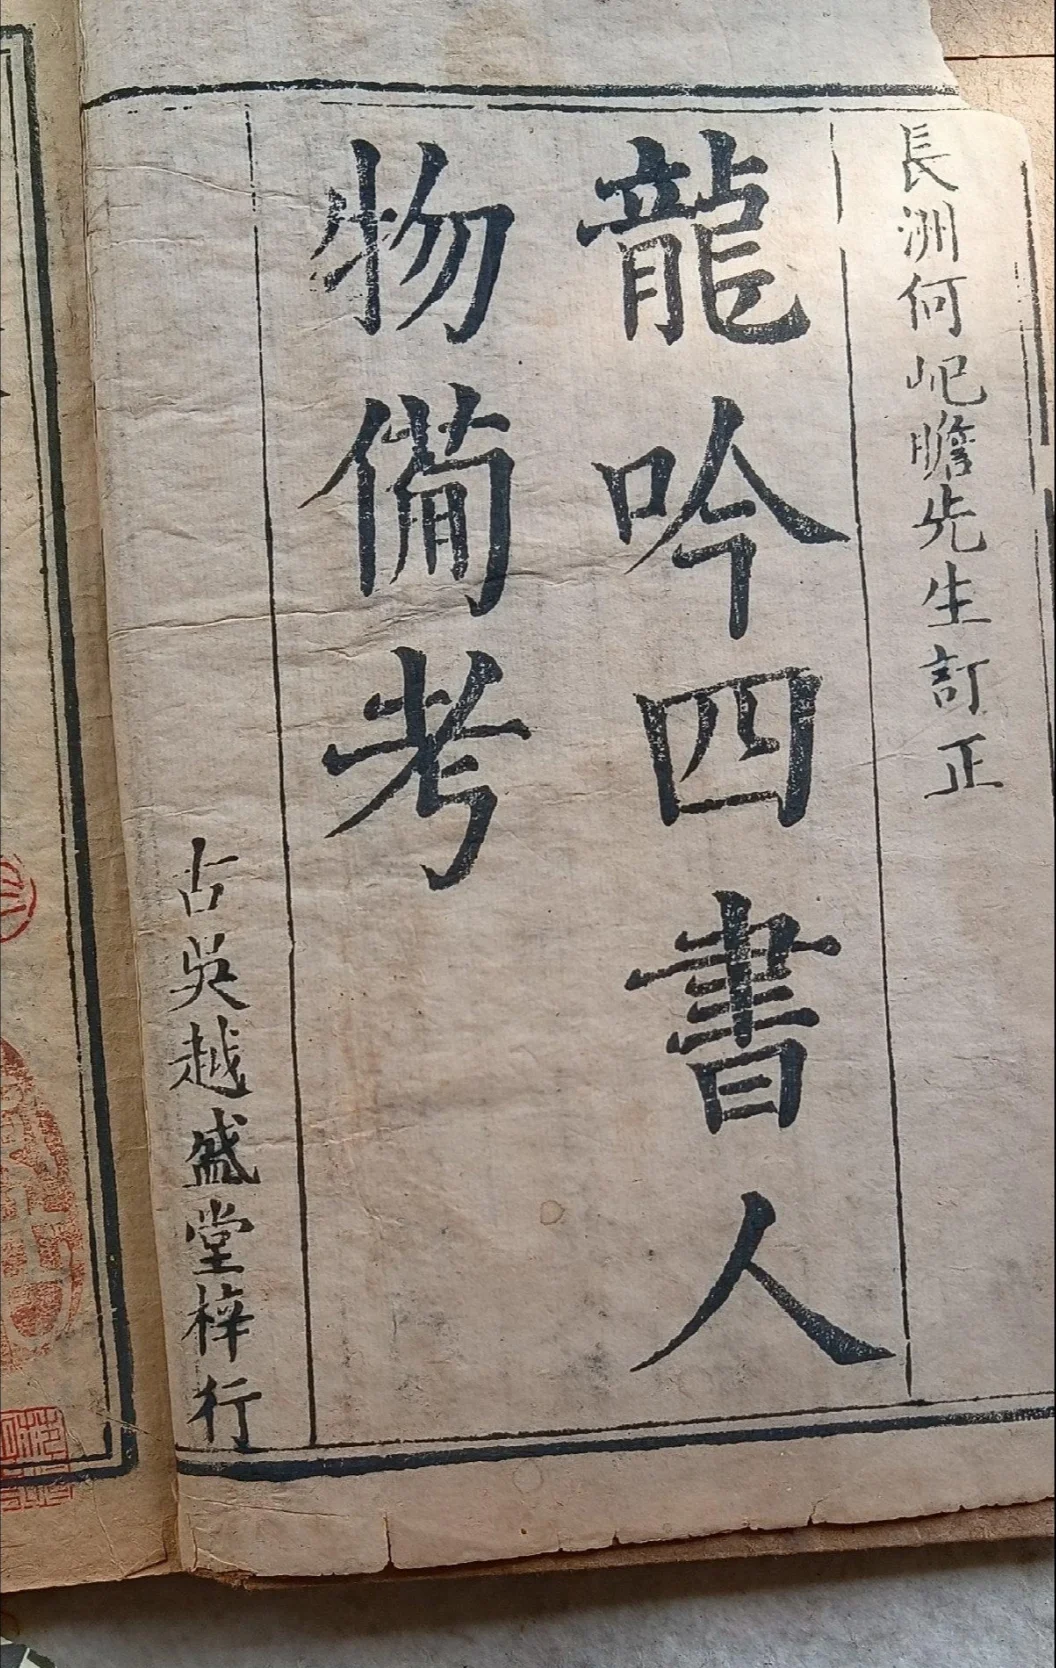 長洲何屺瞻先生訂正
龍吟四書人
物備考
古吳越盛堂梓行